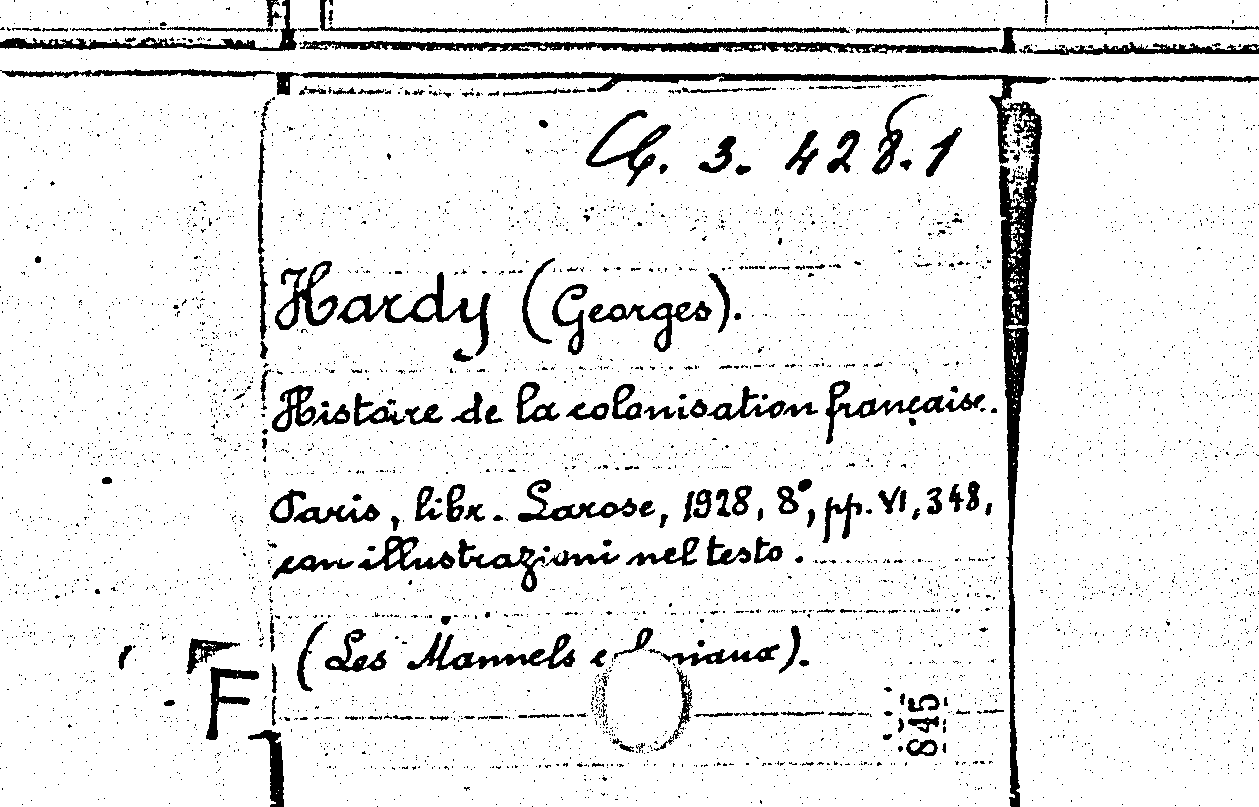 Cb. 3. 428.1
Hardy (Georges).
Histoire de la colonisation française.
Paris, libr. Larose, 1928, 8°, pp. VI, 348,
con illustrazioni nel testo.
(Les Manuels coloniaux).
F
845